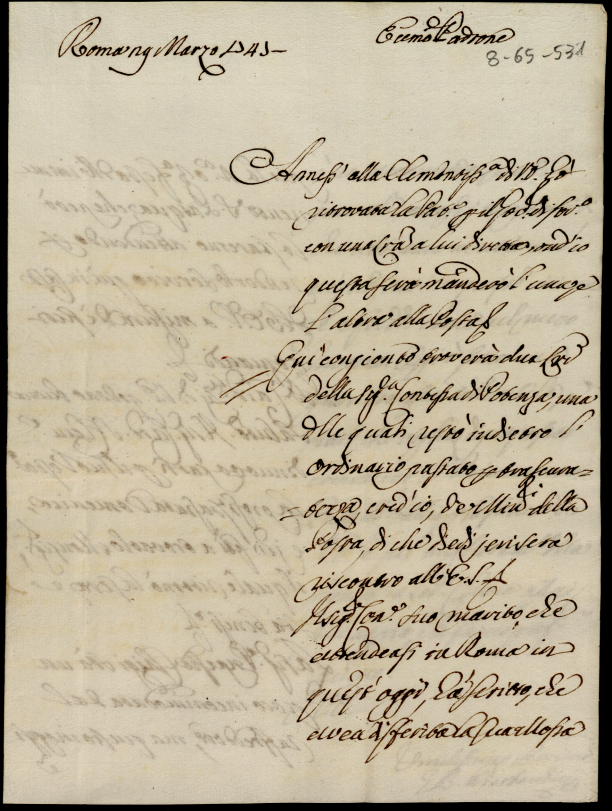 Roma 19 Marzo 1741 -
Ecc.mo Padrone
8-65-531
Annessa alla Clementiss.a di V. E. hò
ritrovata la
con una Lra a lui diretta, ond'io
questa sera manderò l'una, e
l'altra alla Posta
Quì congionto troverà due Lre
della Sig.a Contessa di Potenza, una
delle quali restò indietro l'
ordinario passato p trascura-
=tezza, cred'io, de Min.i della
Posta, di che diedi jeri sera
riscontro all'E. S.
Il Sig.r Con.e suo marito, che
attendeasi in Roma in
quest'oggi, hà scritto, che
avea differita la sua mossa